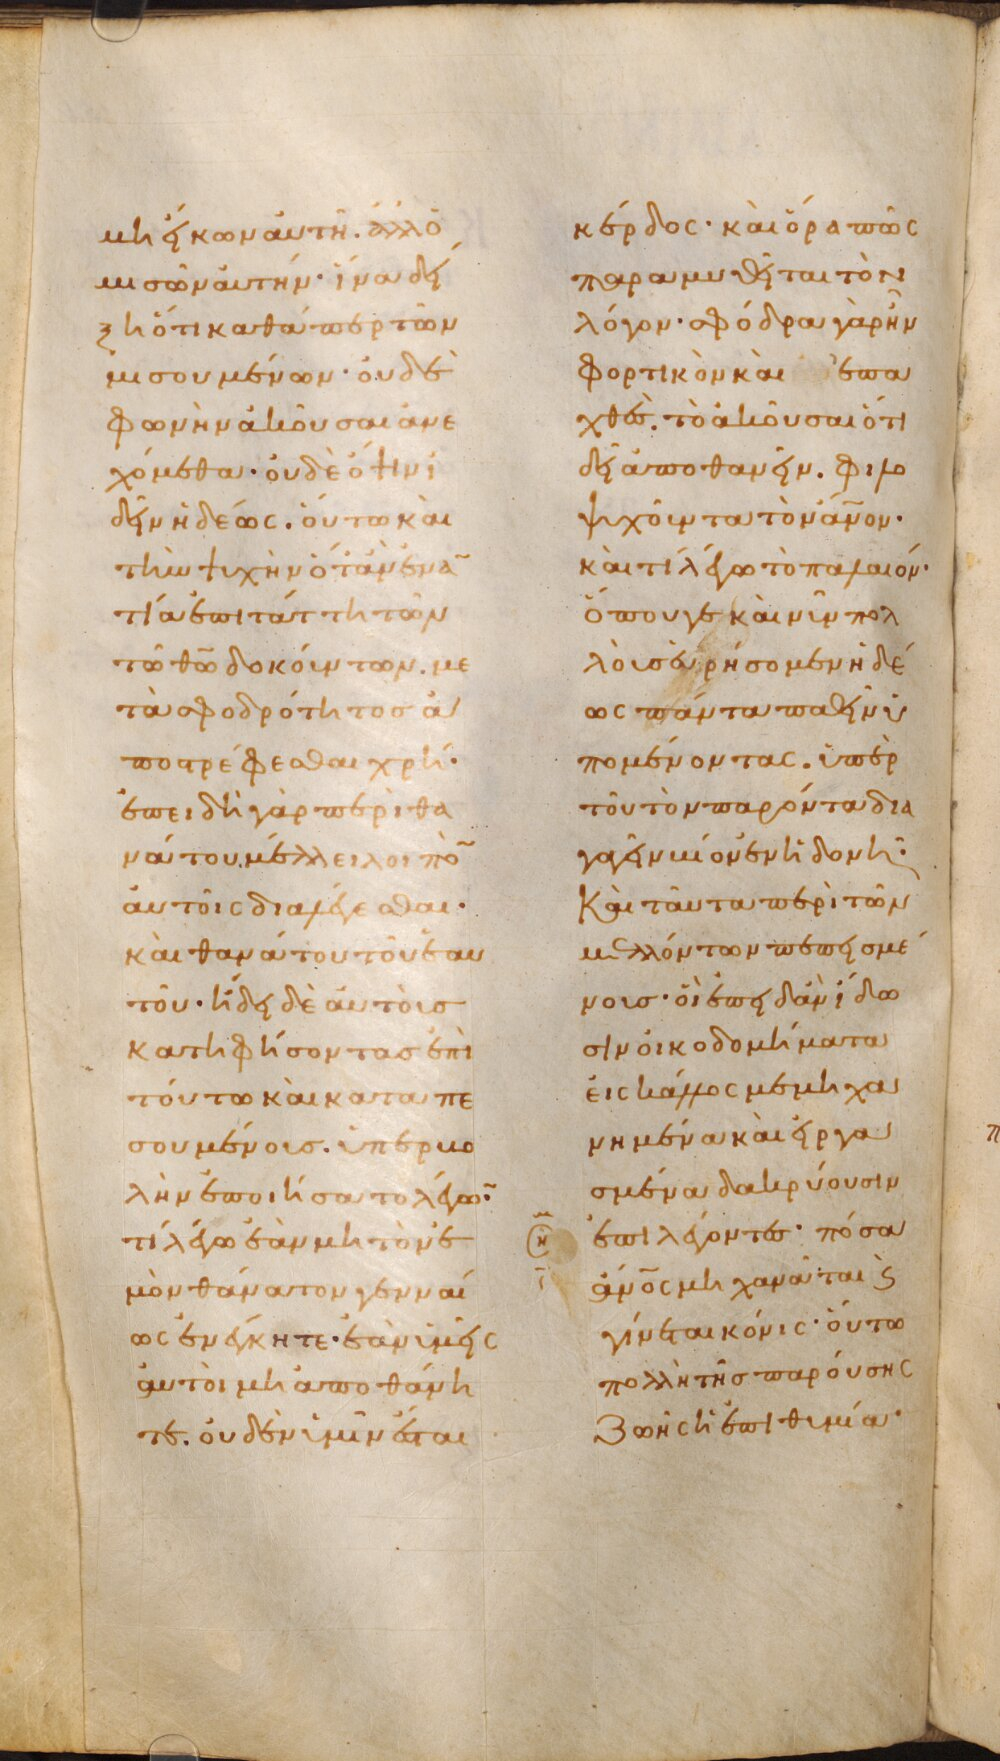 μὴ εἴκων αὐτῆ. ἀλλ' ὁ
μισῶν αὐτήν· ἵνα δεί
ξη ὅτι καθάπερ τῶν
μισουμένων· οὐδὲ
φωνὴν ἀκοῦσαι ἀνε
χόμεθα· οὐδὲ ὄψιν ἰ
δεῖν ἡδέως. οὕτω καὶ
τὴν ψυχὴν ὅτἂν ἐνα̅
τία ἐπιτάττη τῶν
τῶ θω̅ δοκούντων. με
τὰ σφοδρότητος ἀ
ποτρέφεσθαι χρή·
ἐπειδὴ γὰρ περὶ θα
νάτου μέλλει λοιπὸ̅
αὐτοῖς διαλέγεσθαι·
καὶ θανάτου τοῦ ἑαυ
τοῦ· ἤδει δὲ αὐτοὺς
κατηφήσοντας ἐπὶ
τούτω καὶ καταπε
σουμένοις. ὑπερβο
λὴν ἐποιήσατο λέγω̅·
τί λέγω ἐὰν μὴ τὸν ἐ
μὸν θάνατον γενναί
ως ἐνέγκητε· ἐὰν ὑμεῖς
αὐτοὶ μὴ ἀποθάνη
τε. οὐδὲν ὑμῖν ἔσται
κέρδος· καὶ ὅρα πῶς
παραμυθεῖται τὸν
λόγον· σφόδρα γὰρ ἦν
φορτικὸν καὶ ἐπα
χθὲς. τὸ ἀκοῦσαι ὅτι
δεῖ ἀποθανεῖν. φιλο
ψυχοῦντα τὸν ἄν̅ον·
καὶ τί λέγω τὸ παλαιόν·
ὅπου γε καὶ νῦν πολ
λοὺς εὑρήσομεν ἡδέ
ως πάντα παθεῖν ὑ
πομένοντας. ὑπὲρ
τοῦ τὸν παρόντα δια
γαγεῖν βίον ἐν ἡδονῆ·
Καὶ ταῦτα περὶ τῶν
μελλόντων πεπεισμέ
νοις· οἳ ἐπειδὰν ἴδω
σιν οἰκοδομήματα
εἰς κάλλος μεμηχα
νημένα καὶ εἰργα
σμένα δακρύουσιν
ἐπιλέγοντες· πόσα
ἄνο̅ς μηχανᾶται ϗ
γίνεται κόνις· οὕτω
πολλὴ τῆς παρούσης
ζωῆς ἡ ἐπιθυμία·